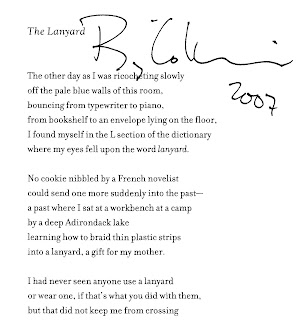 The Lanyard
B Collins
2007
The other day as I was ricocheting slowly
off the pale blue walls of this room,
bouncing from typewriter to piano,
from bookshelf to an envelope lying on the floor,
I found myself in the L section of the dictionary
where my eyes fell upon the word lanyard.
No cookie nibbled by a French novelist
could send one more suddenly into the past—
a past where I sat at a workbench at a camp
by a deep Adirondack lake
learning how to braid thin plastic strips
into a lanyard, a gift for my mother.
I had never seen anyone use a lanyard
or wear one, if that's what you did with them,
but that did not keep me from crossing